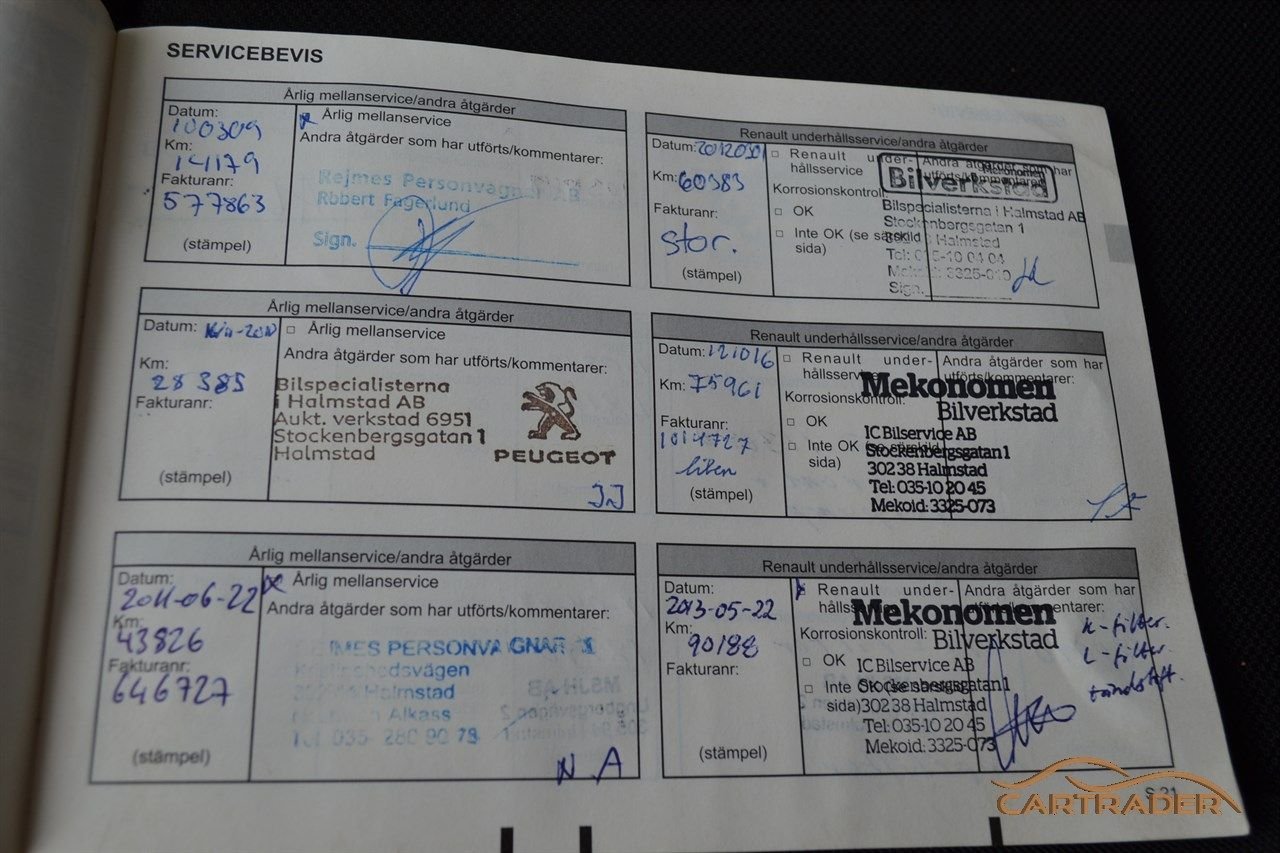 SERVICEBEVIS
Årlig mellanservice/andra åtgärder
Datum:
100309
Km:
14179
Fakturanr:
577863
(stämpel)
Årlig mellanservice
Andra åtgärder som har utförts/kommentarer:
Rejmes Personvagnar AB
Robert Fagerlund
Sign.
Årlig mellanservice/andra åtgärder
Datum:
Km:
28385
Fakturanr:
(stämpel)
Årlig mellanservice
Andra åtgärder som har utförts/kommentarer:
Bilspecialisterna
i Halmstad AB
Aukt. verkstad 6951
Stockenbergsgatan 1
Halmstad
PEUGEOT
JJ
Årlig mellanservice/andra åtgärder
Datum:
2011-06-22
Km:
43826
Fakturanr:
646727
(stämpel)
Årlig mellanservice
Andra åtgärder som har utförts/kommentarer:
PERSONVAGNAR
Halmstad
Alkass
Tel 035- 280 90 78
N A
Renault underhållsservice/andra åtgärder
Datum: 20120301
Km: 60383
Fakturanr:
stor.
(stämpel)
Renault under-
hållsservice
Korrosionskontroll:
OK
Inte OK (se särskild
sida)
Andra åtgärder som har
utförts/kommentarer:
Mekonomen
Bilverkstad
Bilspecialisterna i Halmstad AB
Stockenbergsgatan 1
Halmstad
Tel: 035-10 04 04
Sign.
Renault underhållsservice/andra åtgärder
Datum: 121016
Km: 75961
Fakturanr:
1014727
liten
(stämpel)
Renault under-
hållsservice
Korrosionskontroll:
OK
Inte OK (se särskild
sida)
Andra åtgärder som har
utförts/kommentarer:
Mekonomen
Bilverkstad
IC Bilservice AB
Stockenbergsgatan 1
302 38 Halmstad
Tel: 035-10 20 45
Mekoid: 3325-073
Renault underhållsservice/andra åtgärder
Datum:
2013-05-22
Km:
90188
Fakturanr:
(stämpel)
Renault under-
hållsservice
Korrosionskontroll:
OK
Inte OK (se särskild
sida)
Andra åtgärder som har
utförts/kommentarer:
Mekonomen
Bilverkstad
IC Bilservice AB
Stockenbergsgatan 1
302 38 Halmstad
Tel: 035-10 20 45
Mekoid: 3325-073
K-filter.
L-filter.
tändstift.
S 21
CARTRADER